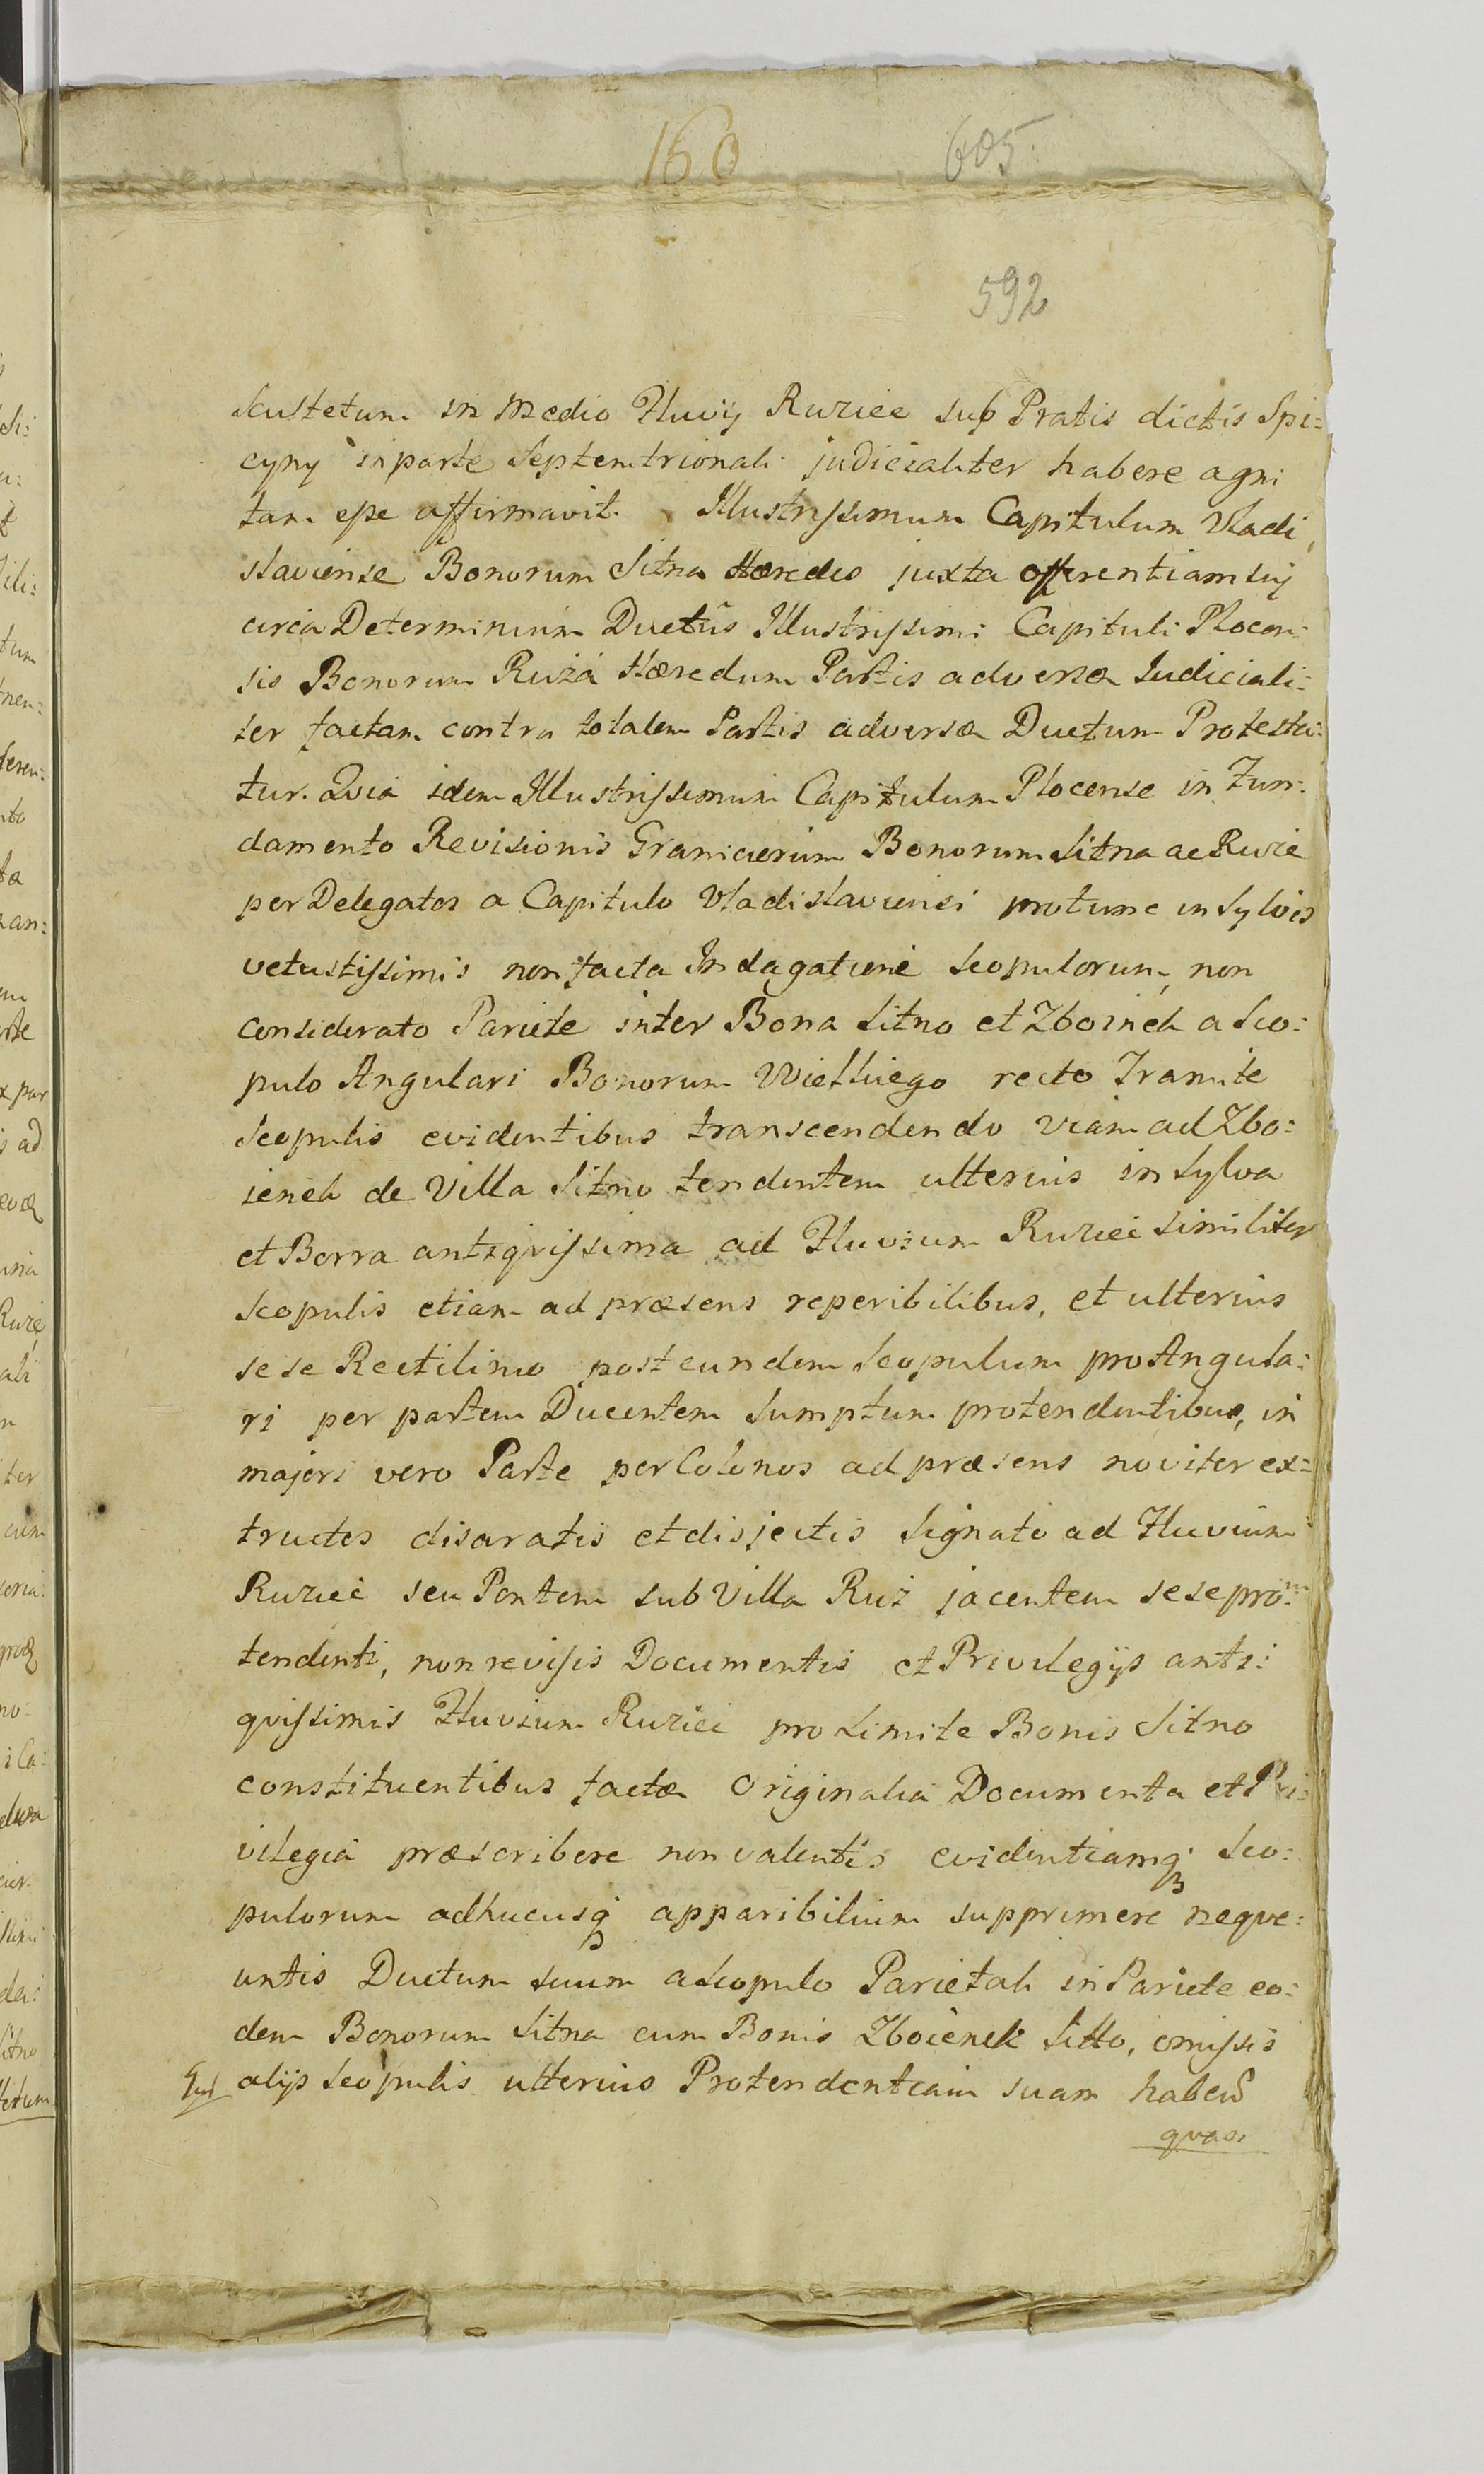 160
605
592
Scultetum in Medio Fluvij Ruziec sub Pratis dictis Spi:
cyny in parte Septemtrionali judicialiter habere agni
tam esse affirmavit. Illustrissimum Capitulum Vladi
slaviense Bonorum Sitna Hæredes juxta offerentiam sui
circa Determinium Ductûs Illustrissimi Capituli Plocen:
sis Bonorum Ruża Hæredum Partis adversæ Judiciali:
ter factam contra totalem Partis adversæ Ductum Protesta:
tur. Qvia idem Illustrissimum Capitulum Plocense in Fun:
damento Revisionis Granicierum Bonorum Sitna ac Ruże
per Delegatos a Capitulo Vladislaviensi protunc in Sylvis
vetustissimis non facta Indagatione Scopulorum, non
considerato Pariete inter Bona Sitno et Zboinek a Sco:
pulo Angulari Bonorum Wielkiego recto Tramite
Scopulis evidentibus transcendendo viam ad Zbo:
ienek de Villa Sitno tendentem ulterius in Sylva
et Borra antiqvissima ad Fluvium Ruziec similiter
Scopulis etiam ad præsens reperibilibus, et ulterius
sese Rectilineo post eundem Scopulum pro Angula:
ri per partem Ducentem Sumptum protendentibus, in
majori vero Parte per Colonos ad præsens noviter ex:
tructos disaratis et disjectis Signato ad Fluvium
Ruziec seu Pontem sub Villa Ruż jacentem sese pro:
tendenti, non revisis Documentis et Privilegijs anti:
qvissimis Fluvium Ruziec pro Limite Bonis Sitno
constituentibus factæ Originalia Documenta et Pri:
vilegia præscribere non valentis evidentiamq3 Sco:
pulorum adhucusq3 apparibilium supprimere neqve:
untis Ductum suum a Scopulo Parietali in Pariete eo:
dem Bonorum Sitna cum Bonis Zboienek Sitto, omissis
alijs Scopulis ulterius Protendentiam suam habens
quasi